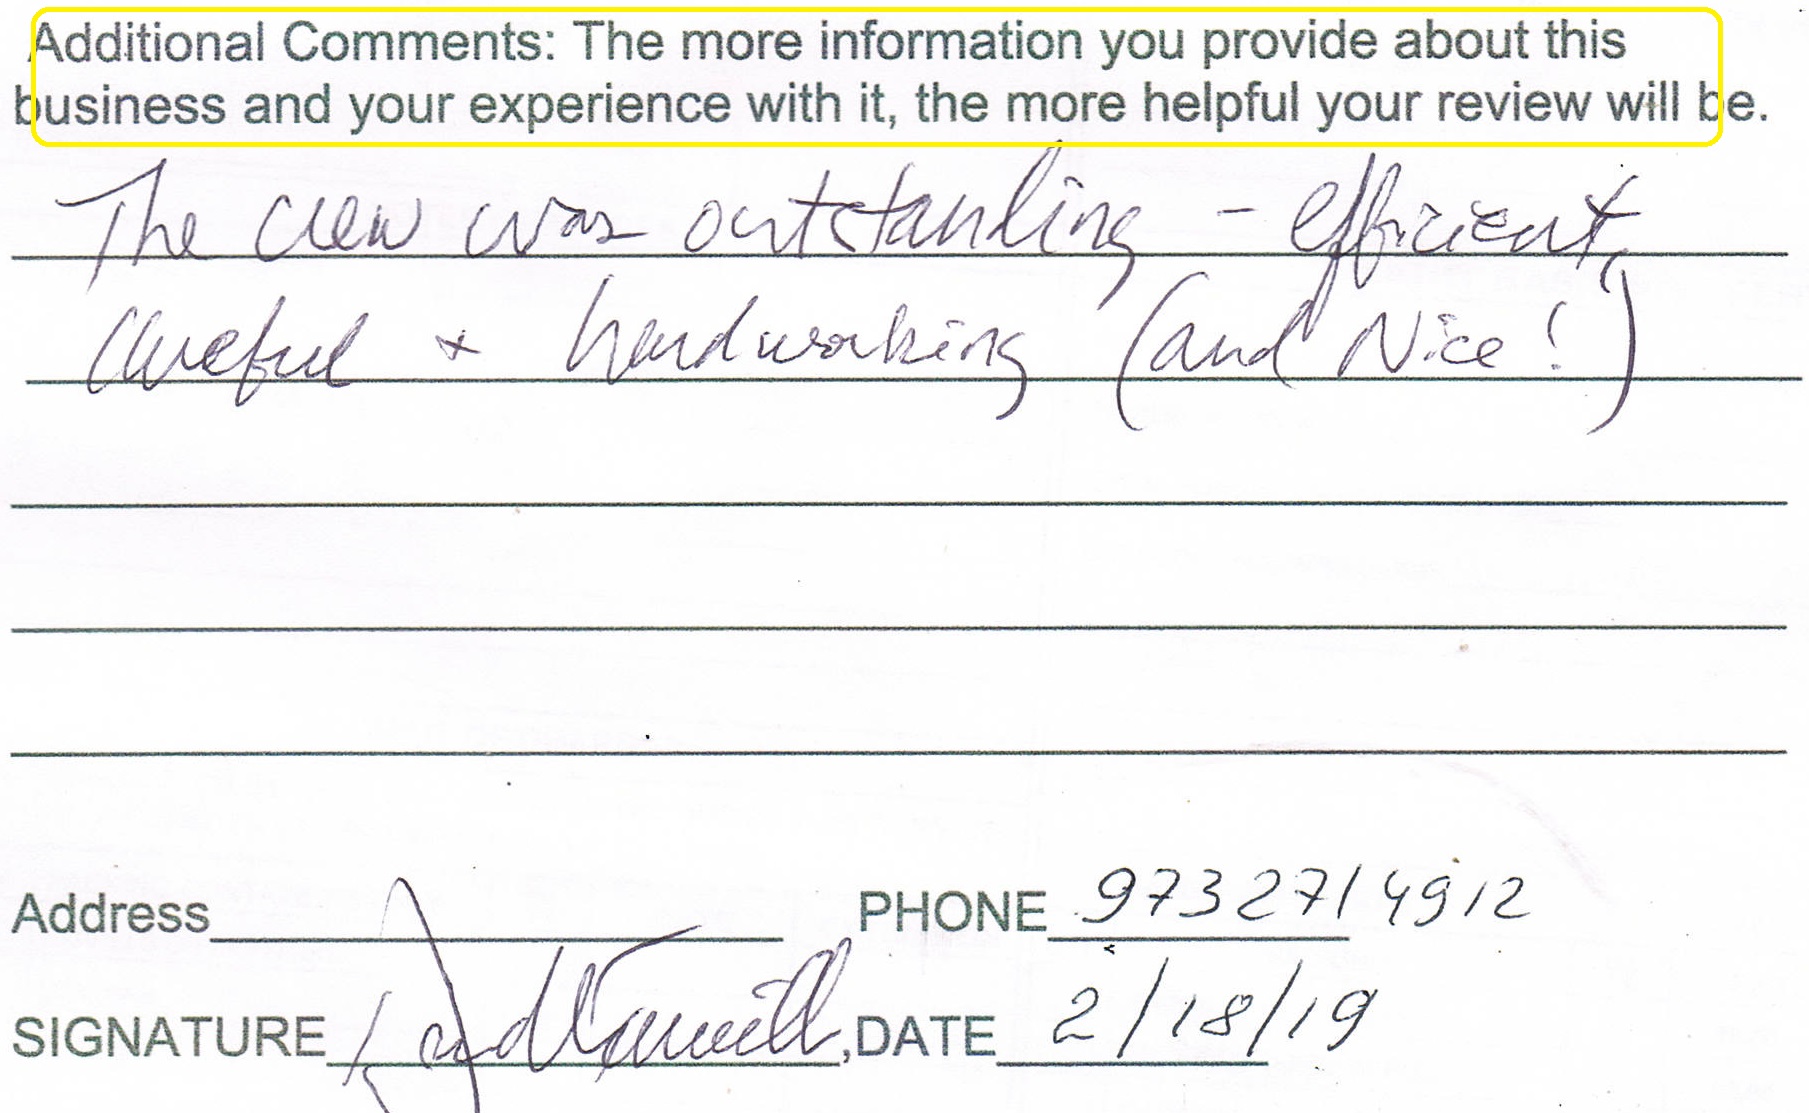 Additional Comments: The more information you provide about this
business and your experience with it, the more helpful your review will be.
The crew was outstanding - efficient,
careful + hardworking (and Nice!)
Address PHONE 9732714912
SIGNATURE , DATE 2/18/19